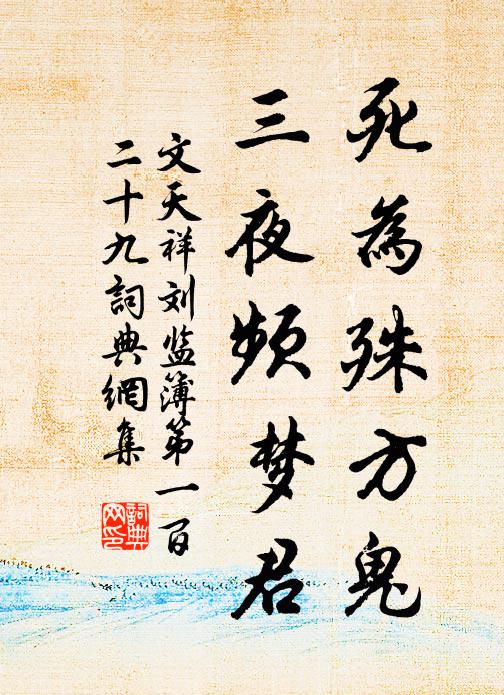 死為殊方鬼
三夜频梦君
文天祥刘监簿第一百
二十九詞典網集
詞典
网印